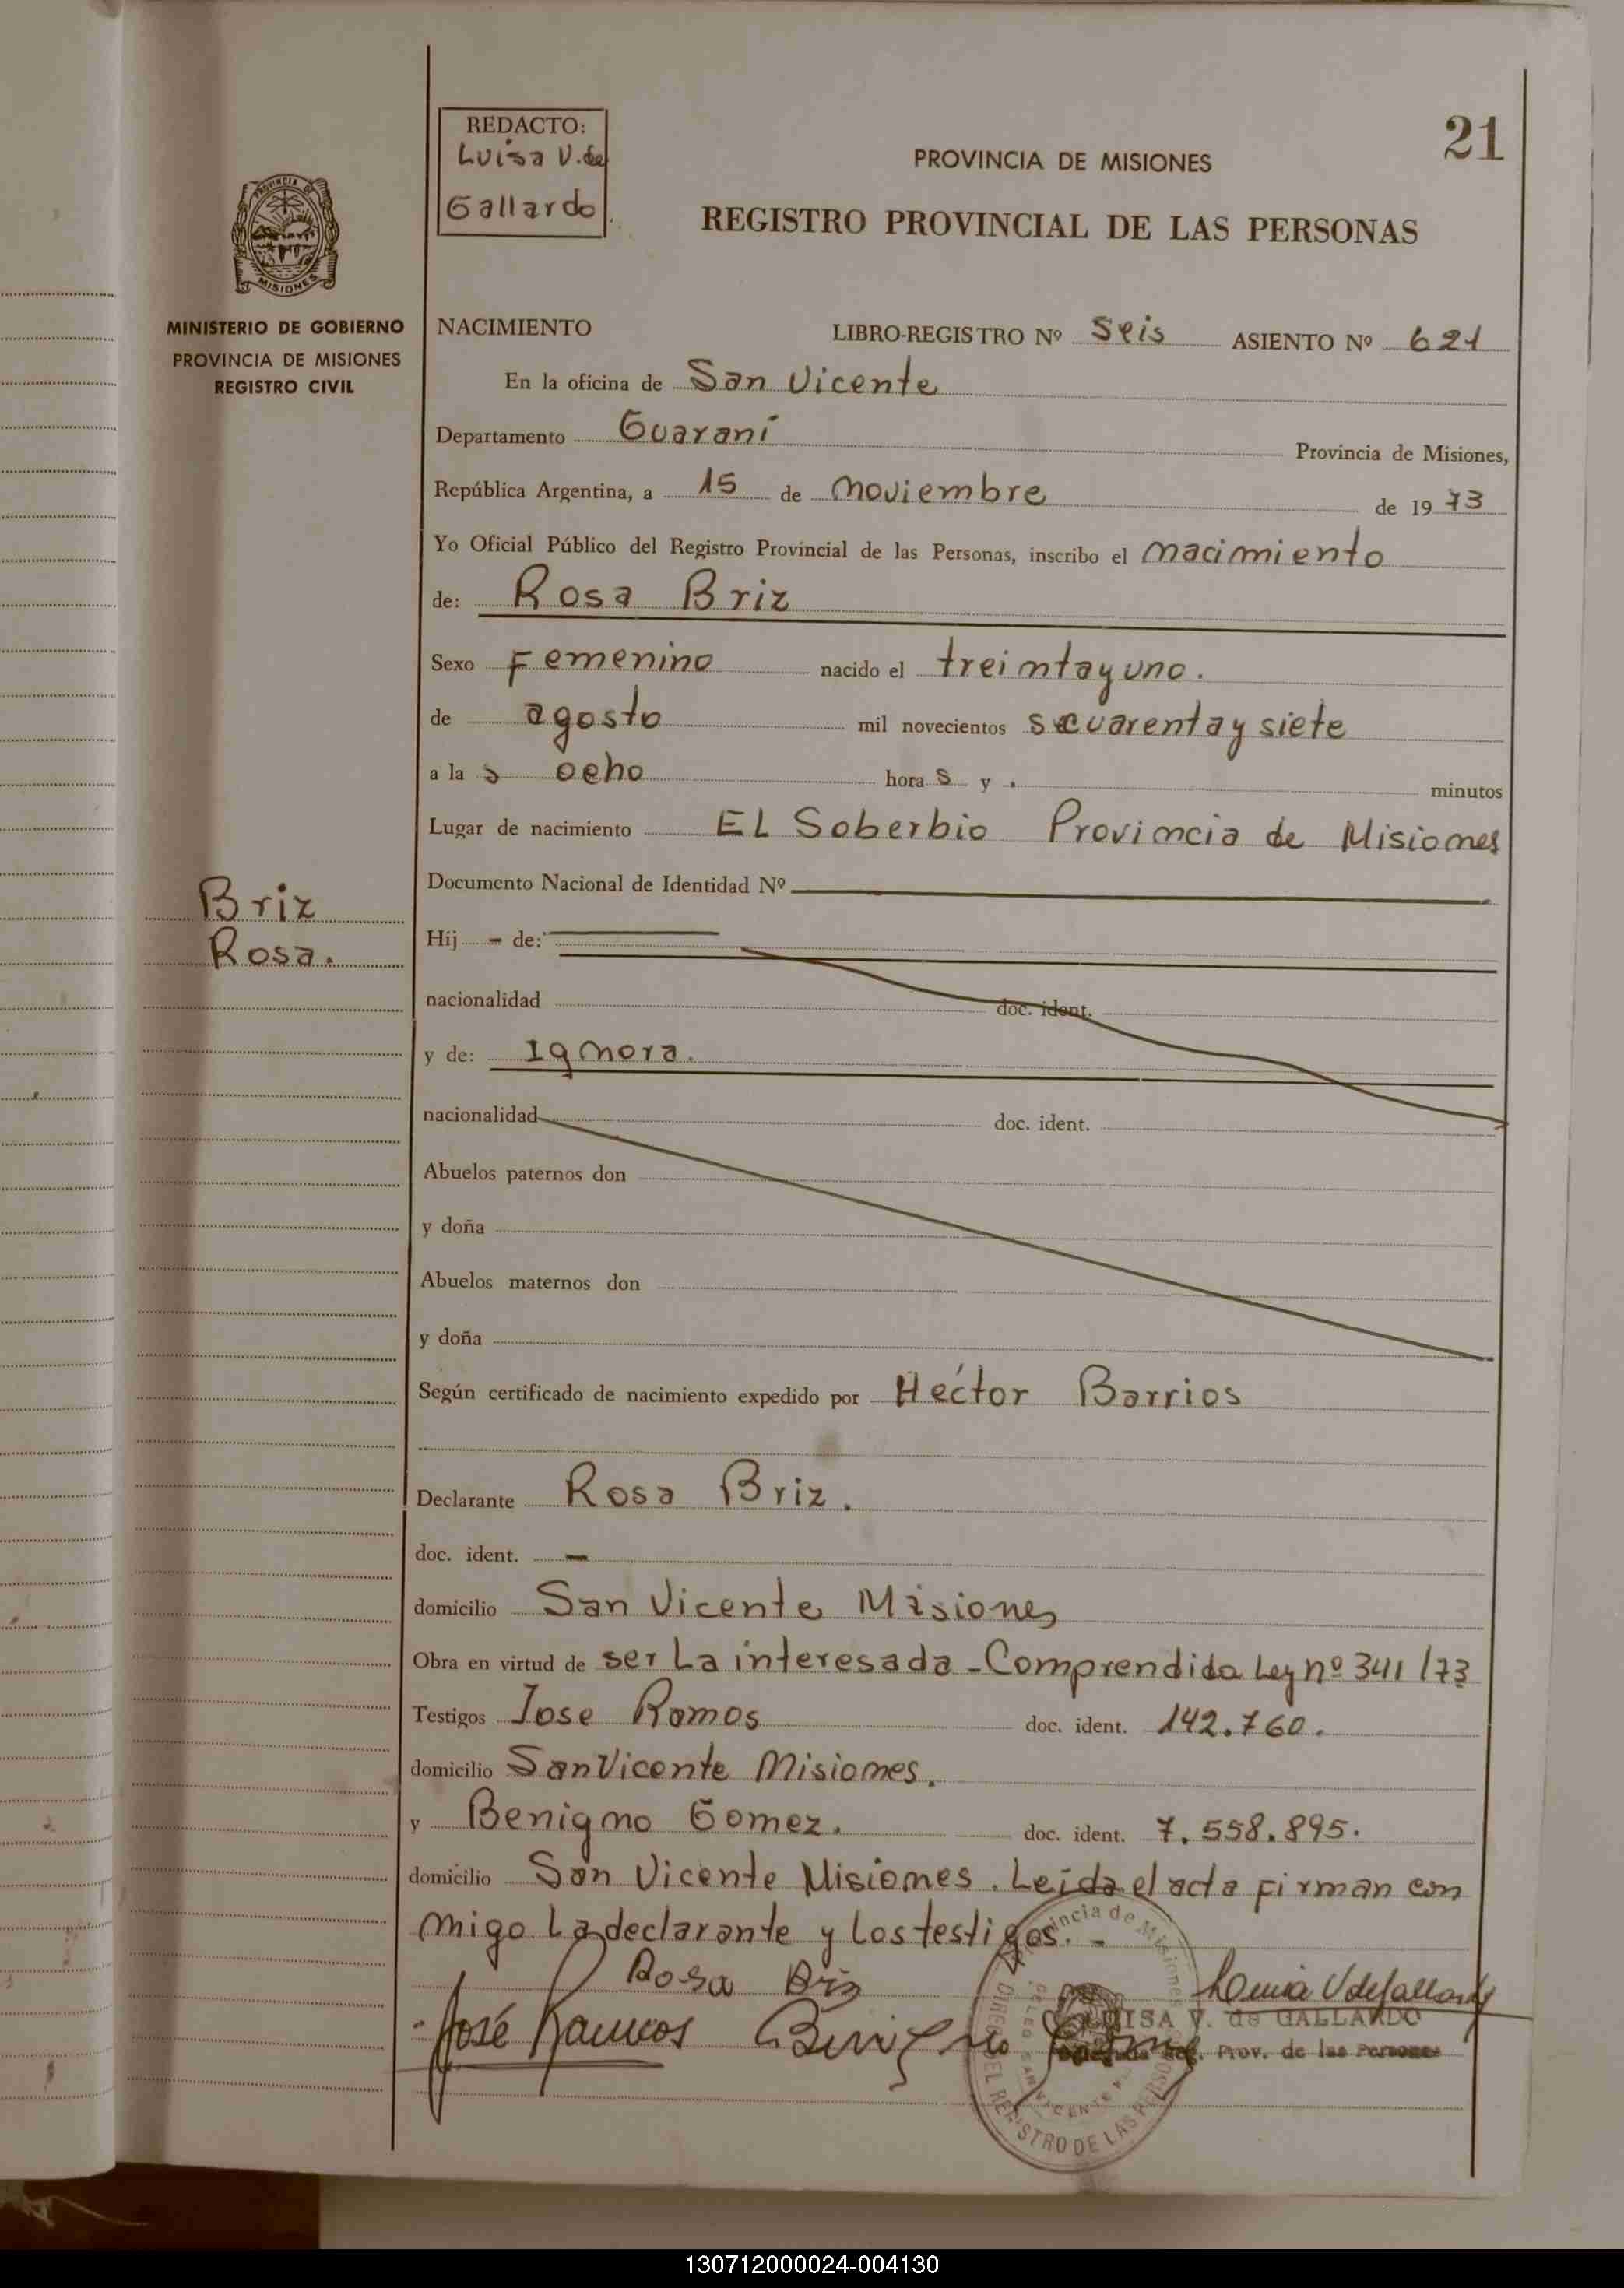 21
REDACTO:
Luisa V. de
Gallardo
PROVINCIA DE MISIONES
REGISTRO PROVINCIAL DE LAS PERSONAS
PROVINCIA DE
MISIONES
MINISTERIO DE GOBIERNO
PROVINCIA DE MISIONES
REGISTRO CIVIL
NACIMIENTO LIBRO-REGISTRO Nº Seis ASIENTO Nº 621
En la oficina de San Vicente
Departamento Guaraní Provincia de Misiones,
República Argentina, a 15 de noviembre de 1973
Yo Oficial Público del Registro Provincial de las Personas, inscribo el nacimiento
de: Rosa Briz
Sexo Femenino nacido el treinta y uno.
de agosto mil novecientos cuarenta y siete
a la s ocho hora s y . minutos
Lugar de nacimiento EL Soberbio Provincia de Misiones
Documento Nacional de Identidad Nº
Briz
Rosa.
Hij - de:
nacionalidad doc. ident.
y de: Ignora.
nacionalidad doc. ident.
Abuelos paternos don
y doña
Abuelos maternos don
y doña
Según certificado de nacimiento expedido por Héctor Barrios
Declarante Rosa Briz.
doc. ident. -
domicilio San Vicente Misiones
Obra en virtud de ser La interesada - Comprendida Ley nº 341/73
Testigos Jose Ramos doc. ident. 142.760.
domicilio San Vicente Misiones.
y Benigno Gomez. doc. ident. 7.558.895.
domicilio San Vicente Misiones. Leída el acta firman con
migo La declarante y Los testigos. -
Rosa Bris
José Ramos Benigno Gomez
Luisa V de Gallardo
LUISA V. de GALLARDO
Delegada Reg. Prov. de las Personas
Provincia de Misiones
DIREC DEL REGISTRO DE LAS PERSONAS
SAN VICENTE
130712000024-004130